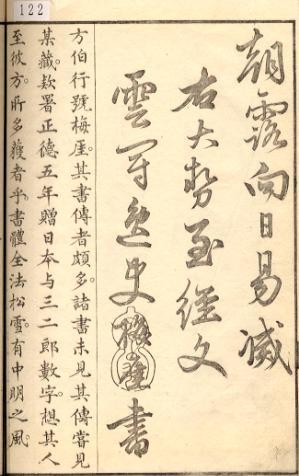 122
朝露向日易滅
右大勢至經文
雲間逸史梅崖書
方伯行號梅厓其書傳者頗多諸書未見其傳嘗見
某藏欵署正德五年贈日本与三二郎數字想其人
至彼方所多獲者乎書體全法松雪有中明之風